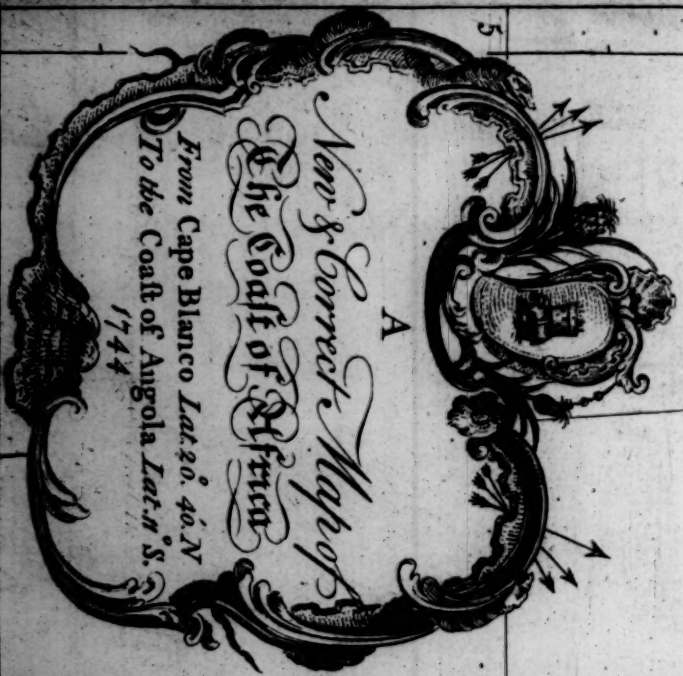 A
New & Correct Map of
The Coaſt of Africa
From Cape Blanco Lat. 20.° 40.' N
To the Coaſt of Angola Lat. 11° S.
1744
5